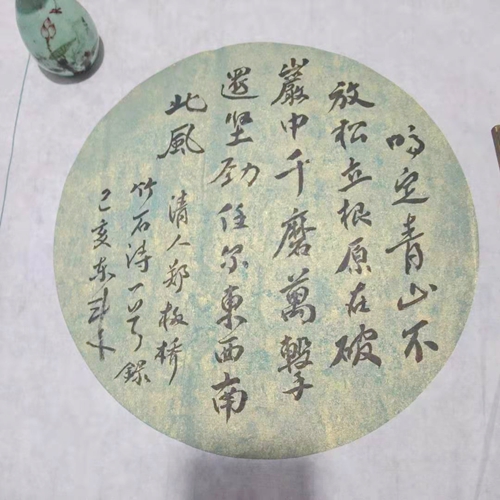 咬定青山不
放松立根原在破
巖中千磨萬擊
還坚劲任尔東西南
北風
清人郑板桥
竹石诗一首録
己亥冬